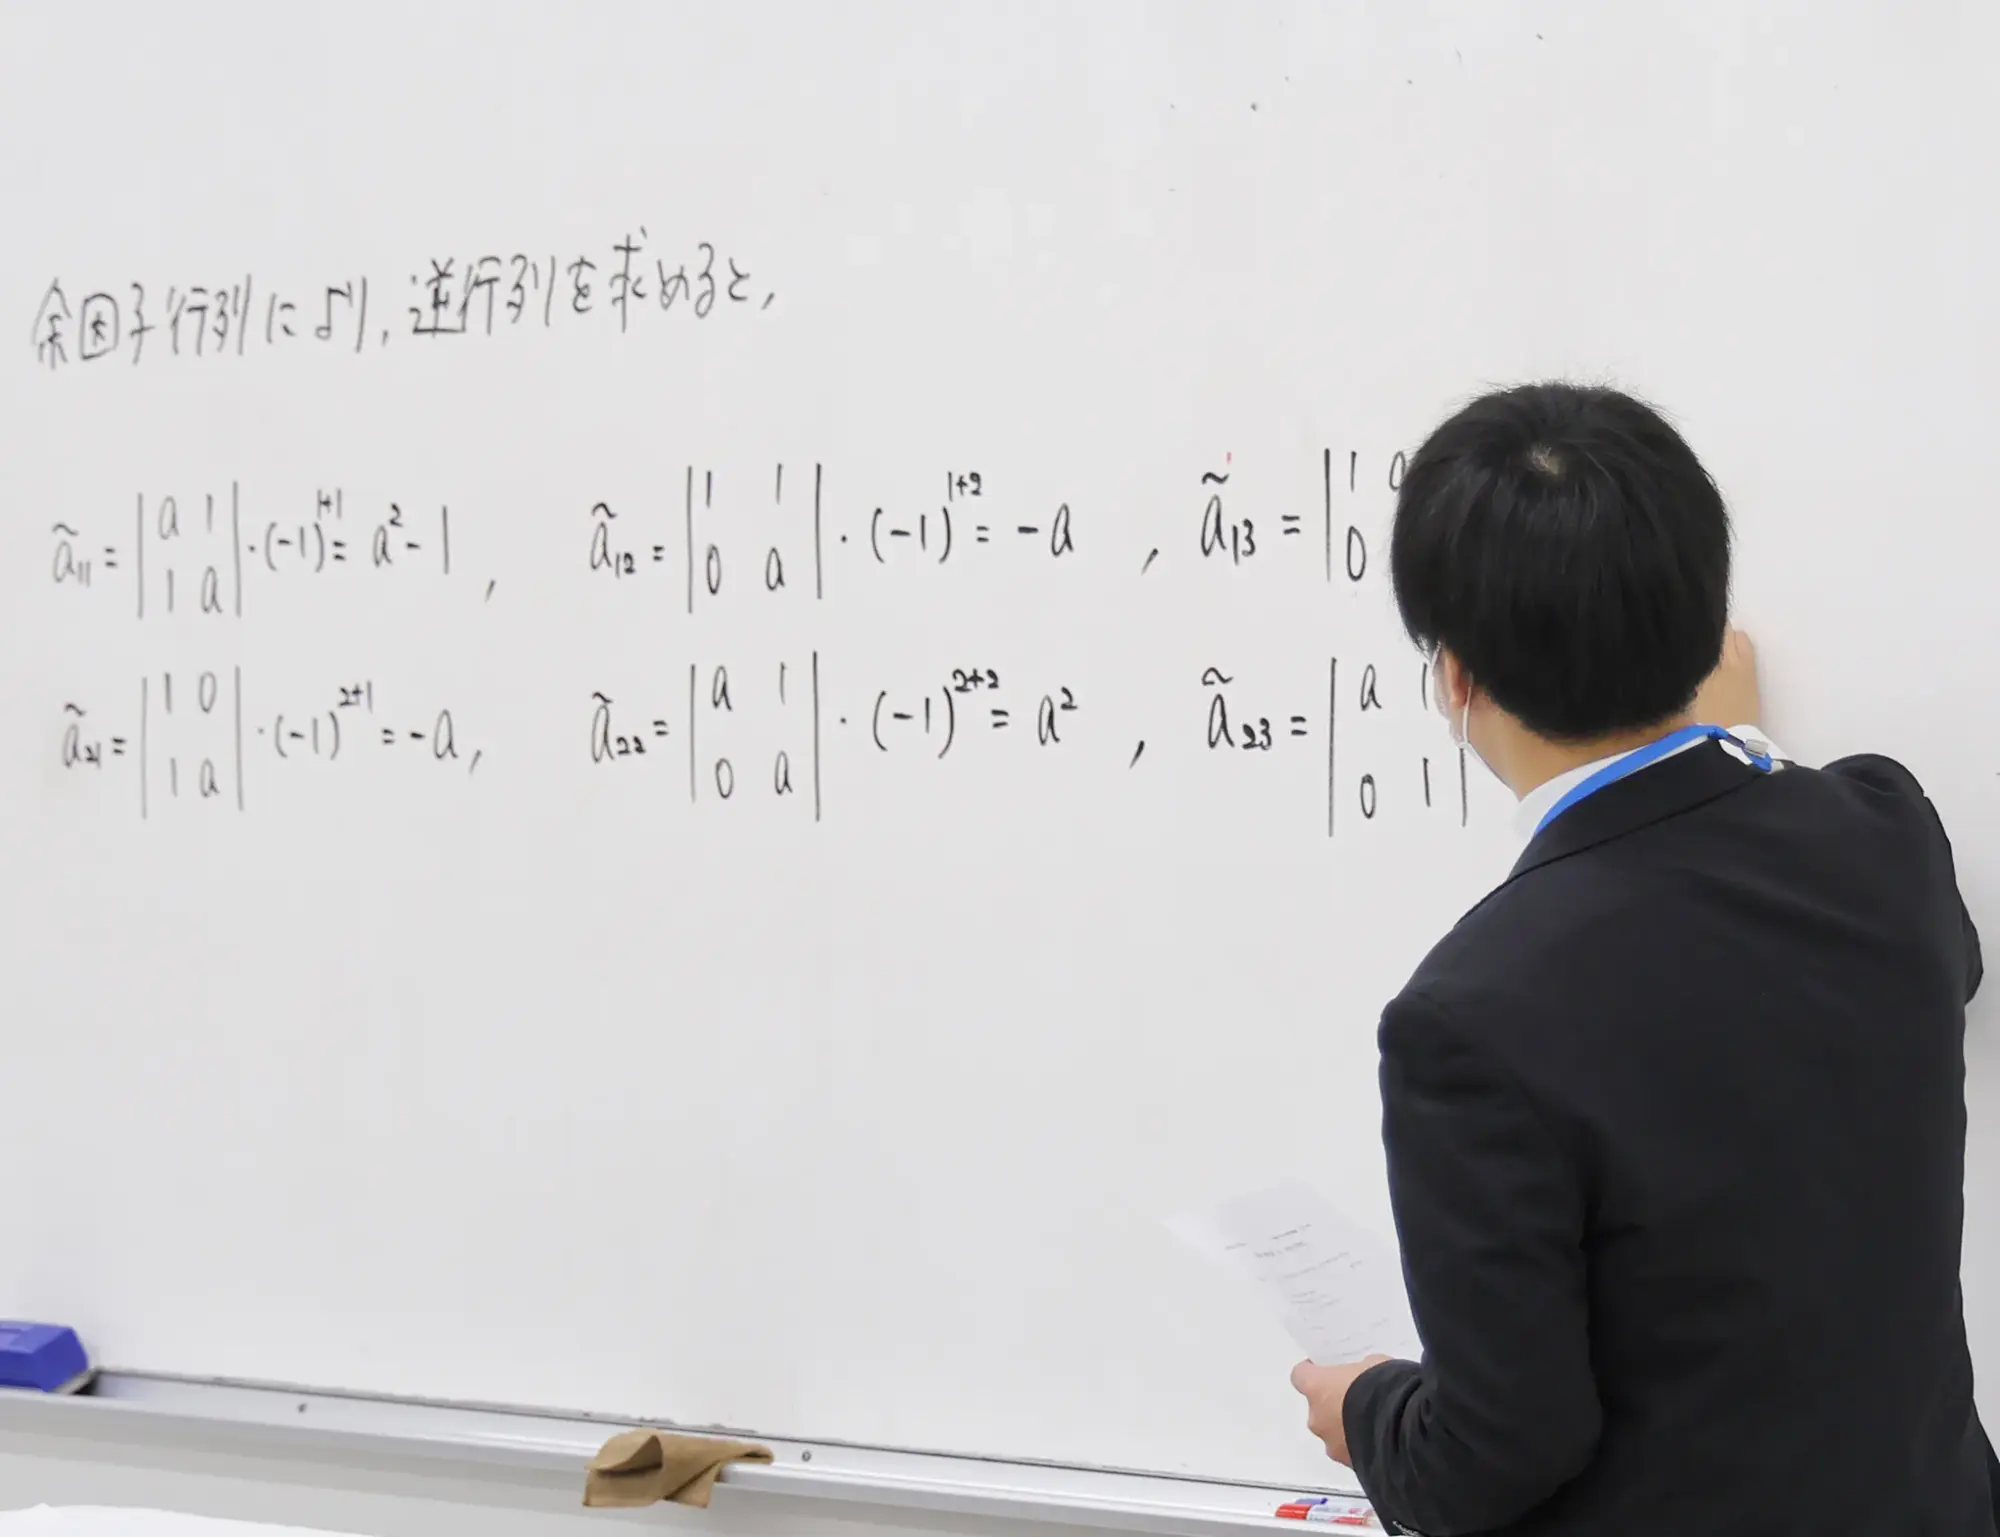 余因子行列により, 逆行列を求めると,
ã₁₁ = |a 1; 1 a| · (-1)¹⁺¹ = a² - 1 , ã₁₂ = |1 1; 0 a| · (-1)¹⁺² = -a , ã₁₃ = |1; 0
ã₂₁ = |1 0; 1 a| · (-1)²⁺¹ = -a , ã₂₂ = |a 1; 0 a| · (-1)²⁺² = a² , ã₂₃ = |a 1; 0 1|